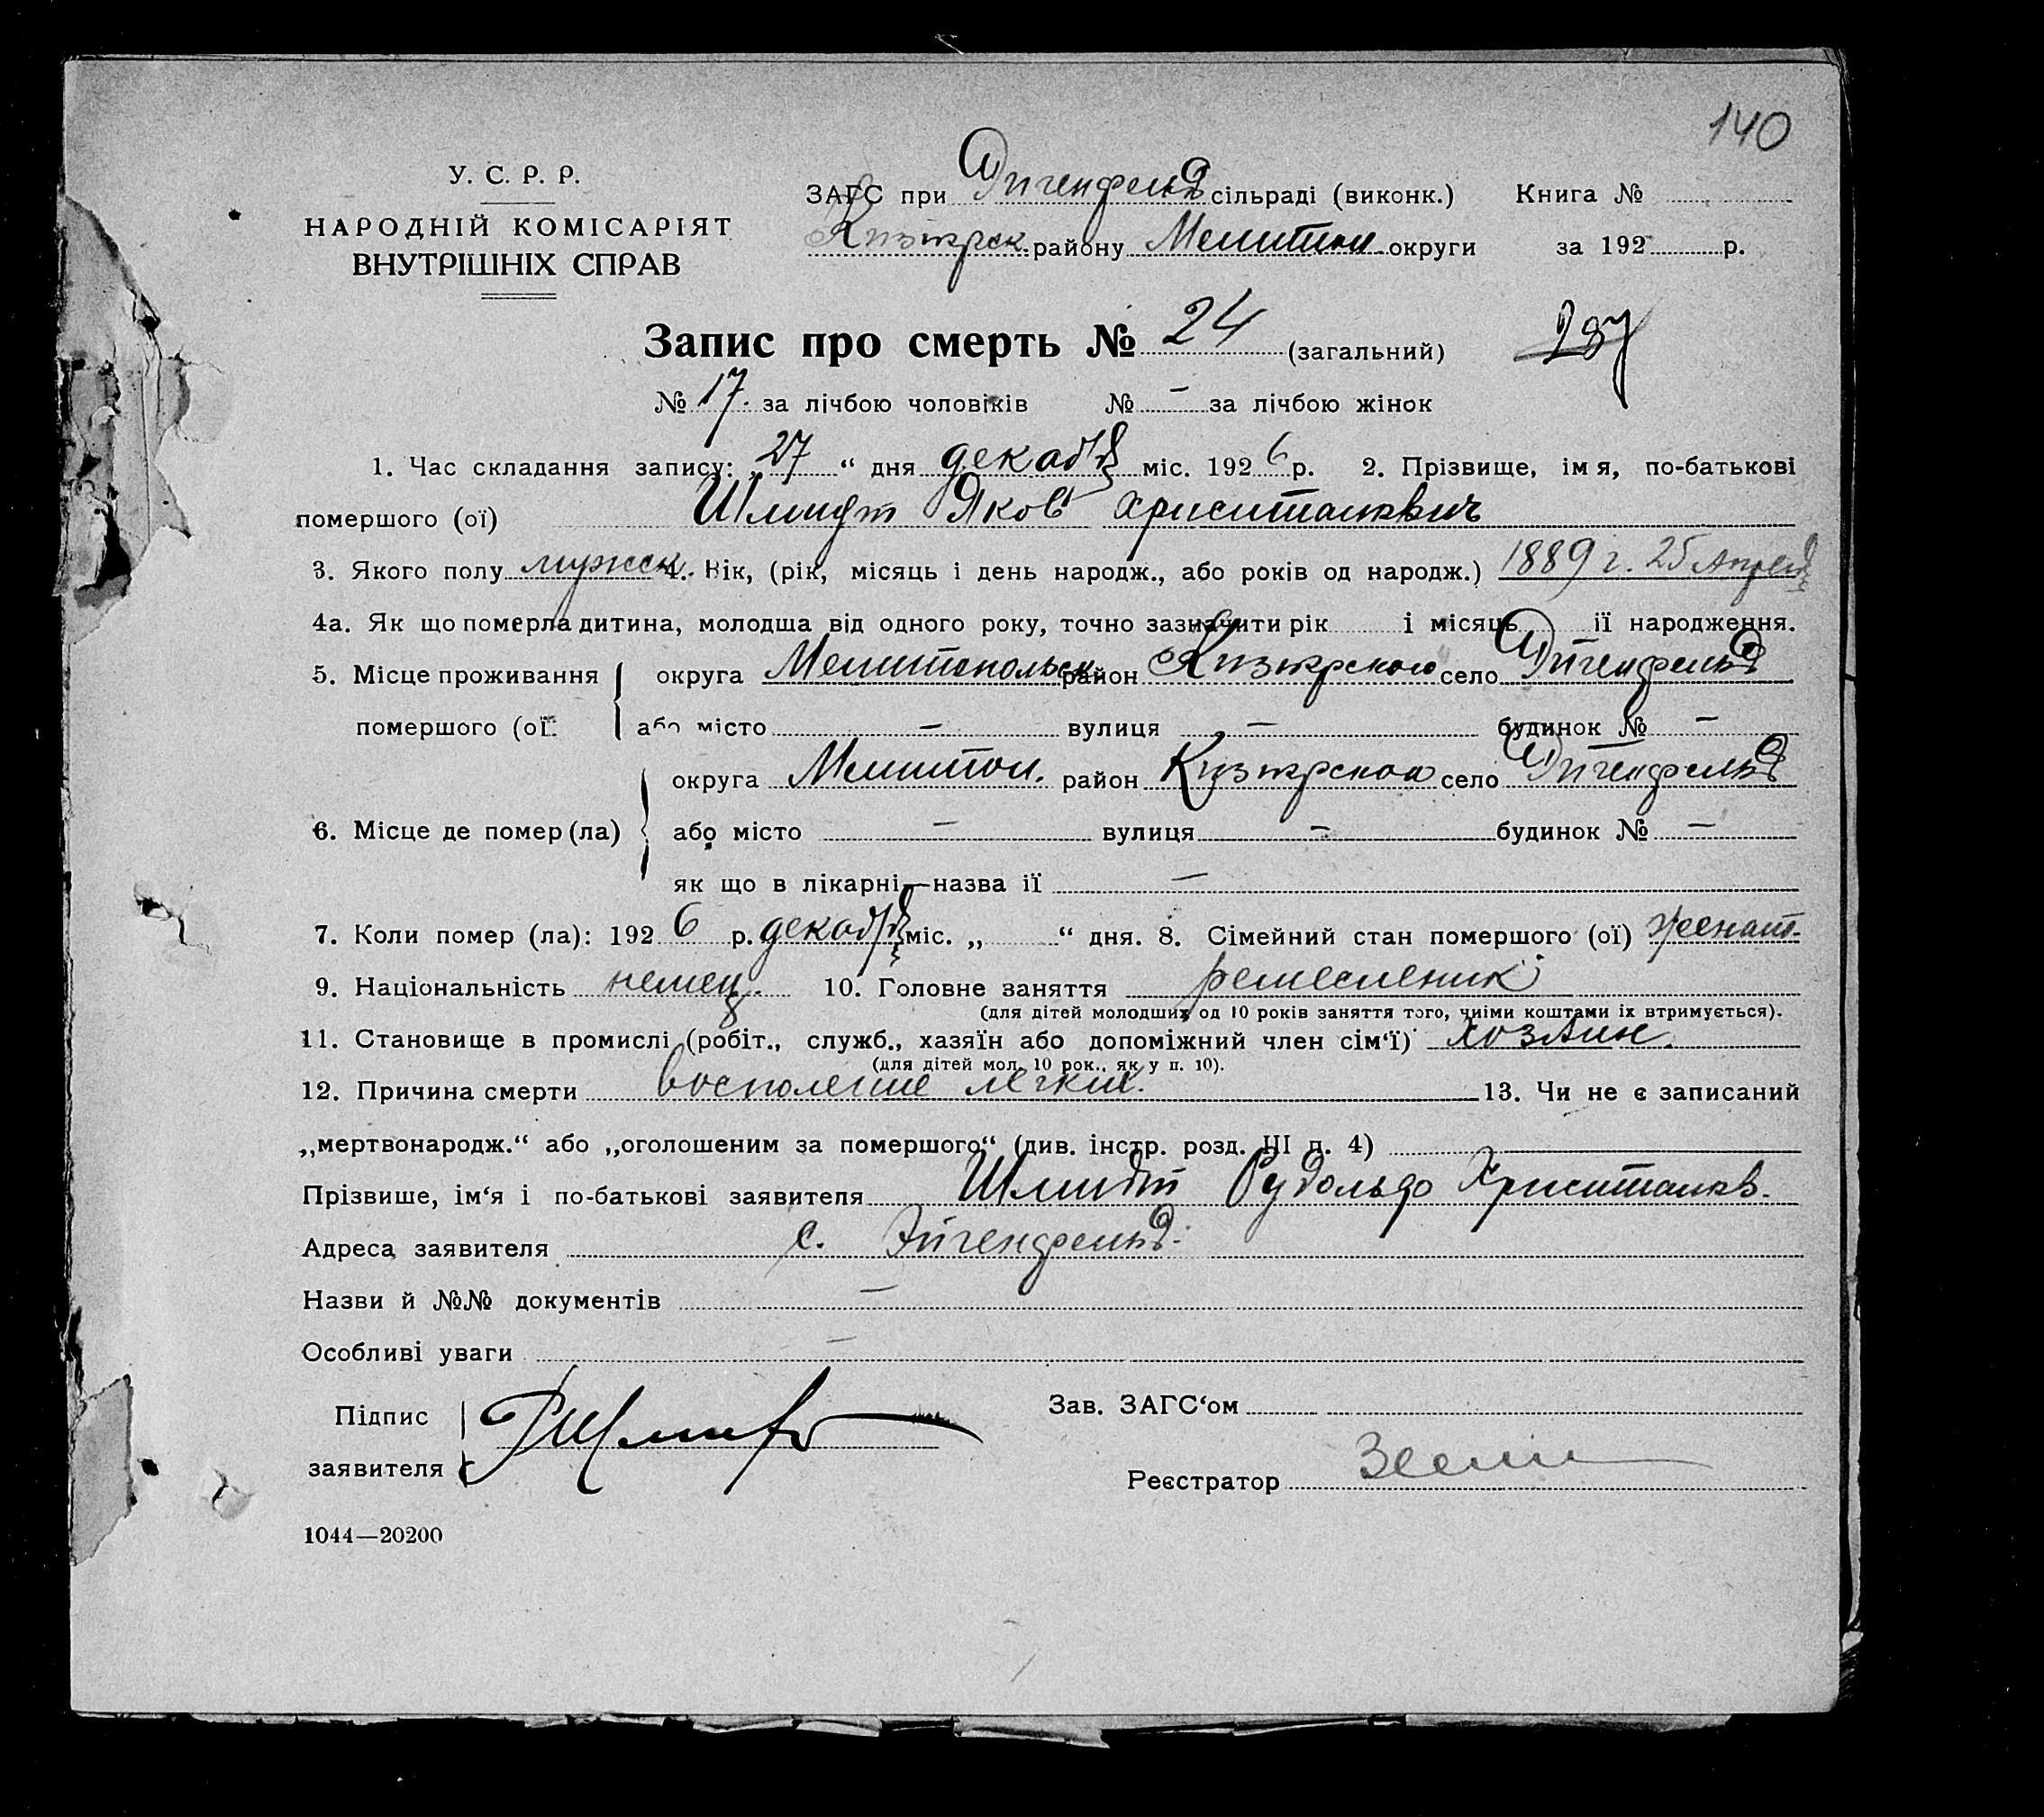 140
У. С. Р. Р.
НАРОДНІЙ КОМІСАРІЯТ
ВНУТРІШНІХ СПРАВ
ЗАГС при Эйгенфельд сільраді (виконк.) Книга №
района Мелитоп. округи за 192 р.
Запис про смерть № 24 (загальний) 287
№ 17. за лічбою чоловіків № — за лічбою жінок
1. Час складання запису: „27“ дня декабря міс. 1926 р. 2. Прізвище, імя, по-батькові
помершого (ої) Шмидт Яков
3. Якого полу мужск. 4. Вік, (рік, місяць і день народж., або років од народж.) 1889 г. 25 Апреля
4а. Як що померла дитина, молодша від одного року, точно зазначити рік і місяць ії народження.
5. Місце проживання округа Мелитопольск. район село Эйгенфельд
помершого (ої) або місто — вулиця — будинок № —
округа Мелитоп. район село Эйгенфельд
6. Місце де помер (ла) або місто — вулиця — будинок № —
як що в лікарні,—назва ії —
7. Коли помер (ла): 1926 р. декабря міс. „ “ дня. 8. Сімейний стан помершого (ої) женат.
9. Національність немец. 10. Головне заняття ремесленик
(для дітей молодших од 10 років заняття того, чиїми коштами іх втримується).
11. Становище в промислі (робіт., служб., хазяїн або допоміжний член сім‘ї) хозяин.
(для дітей мол. 10 рок., як у п. 10).
12. Причина смерти восполение легких. 13. Чи не є записаний
„мертвонародж.“ або „оголошеним за помершого“ (див. інстр. розд. III п. 4)
Прізвише, ім‘я і по-батькові заявителя Шмидт Рудольф
Адреса заявителя с. Эйгенфельд.
Назви й №№ документів —
Особливі уваги —
Підпис
заявителя
Зав. ЗАГС‘ом
Реєстратор
1044—20200